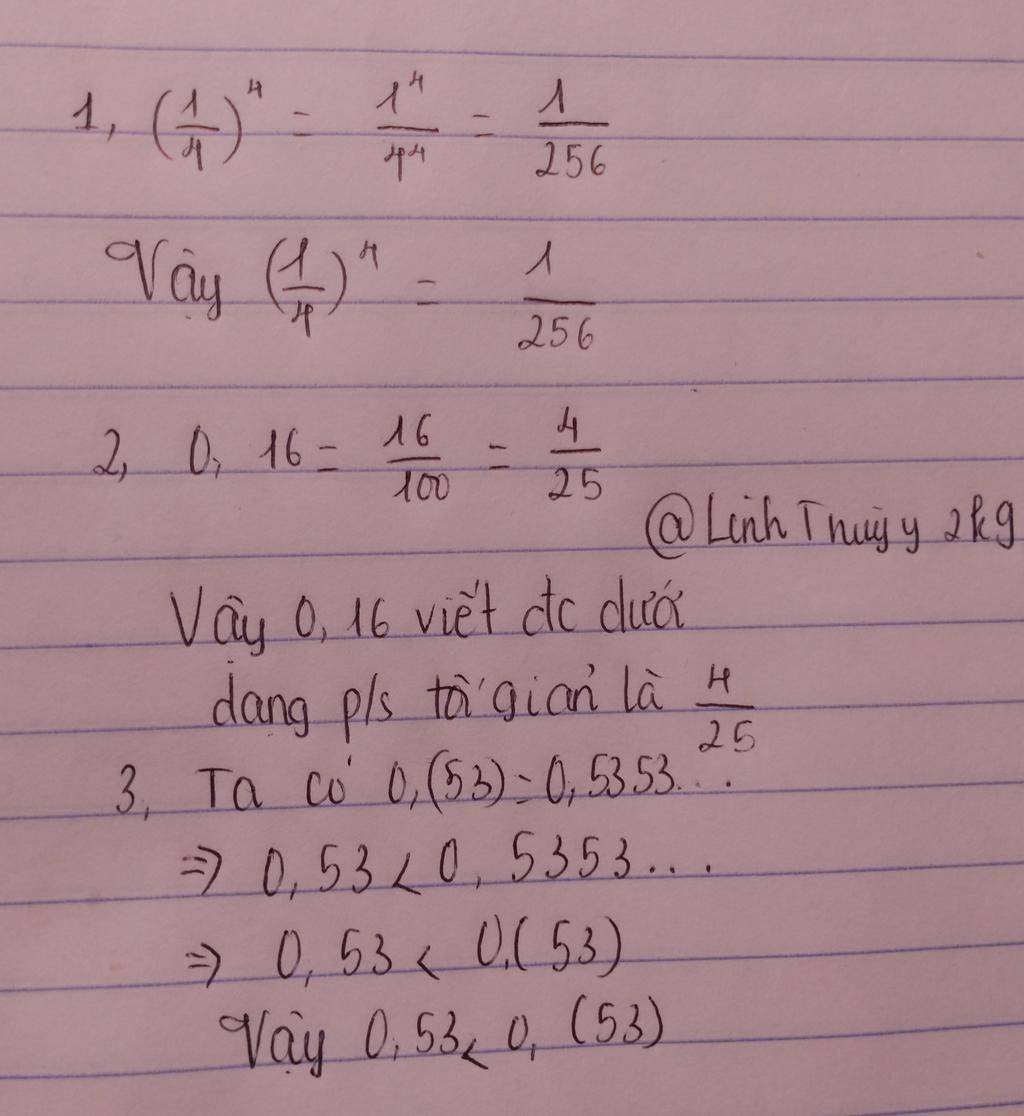 1, (1/4)^4 = 1^4/4^4 = 1/256
Vậy (1/4)^4 = 1/256
2, 0,16 = 16/100 = 4/25
@Linh Thuỳy 2kg
Vậy 0,16 viết đc dưới
dạng p/s tối giản là 4/25
3, Ta có 0,(53) = 0,5353...
=> 0,53 < 0,5353...
=> 0,53 < 0,(53)
Vậy 0,53 < 0,(53)